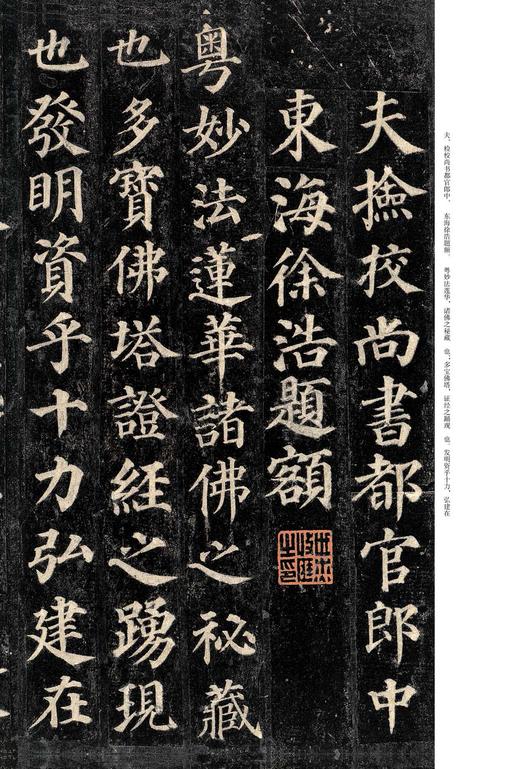 夫撿挍尚書都官郎中
東海徐浩題額
粤妙法蓮華諸佛之祕藏
也多寶佛塔證經之踴現
也發明資乎十力弘建在
夫，检校尚书都官郎中，　东海徐浩题额。　粤妙法莲华，诸佛之秘藏　也；多宝佛塔，证经之踊现　也。发明资乎十力，弘建在